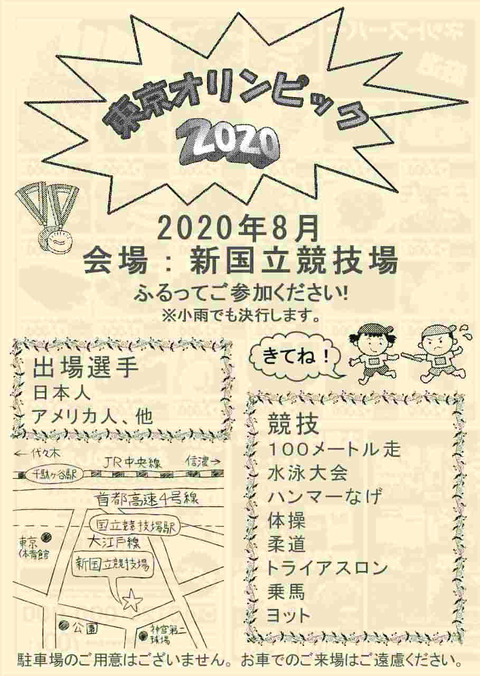 東京オリンピック
2020
2020年8月
会場：新国立競技場
ふるってご参加ください!
※小雨でも決行します。
出場選手
日本人
アメリカ人、他
きてね！
競技
100メートル走
水泳大会
ハンマーなげ
体操
柔道
トライアスロン
乗馬
ヨット
←代々木
JR中央線
信濃→
千駄ヶ谷駅
首都高速4号線
国立競技場駅
大江戸線
東京
体育館
新国立競技場
公園
神宮第二
球場
駐車場のご用意はございません。お車でのご来場はご遠慮ください。